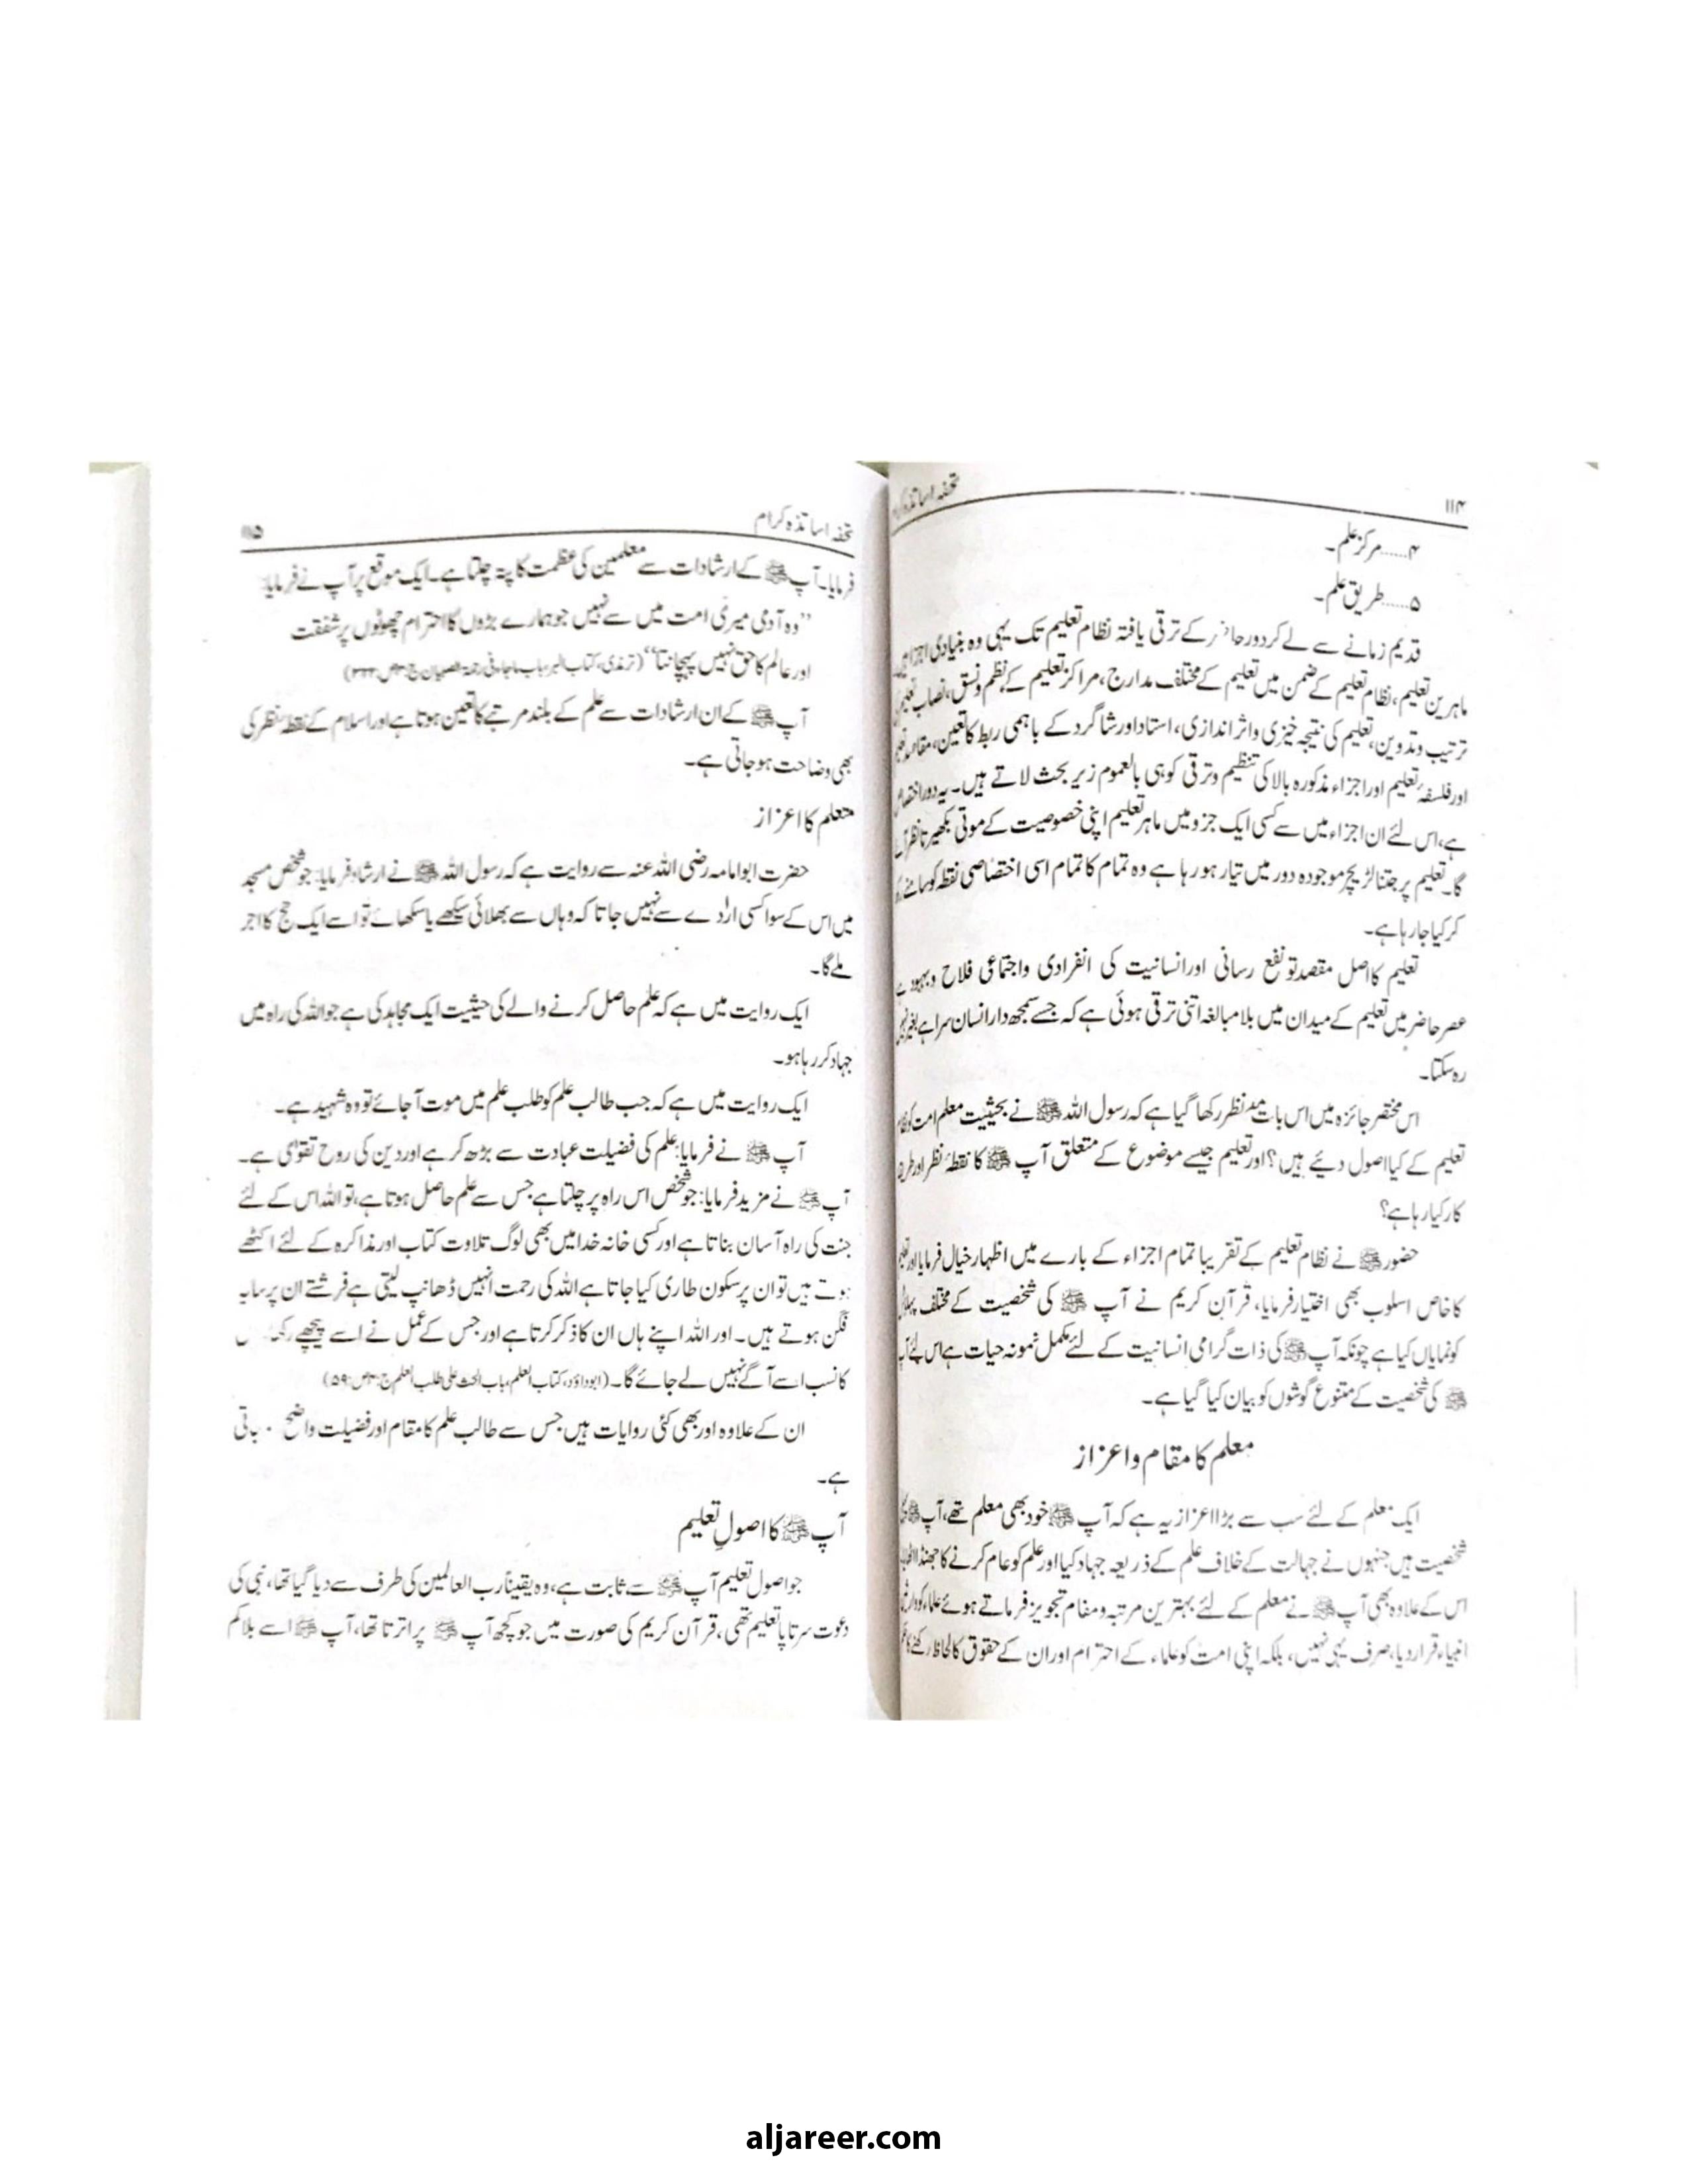 ۱۱۴
تحفہ اساتذہ کرام
۴.....مرکز علم۔
۵.....طریق علم۔
قدیم زمانے سے لے کر دور حاضر کے ترقی یافتہ نظام تعلیم تک یہی وہ بنیادی اجزاء ہیں
ماہرین تعلیم، نظام تعلیم کے ضمن میں تعلیم کے مختلف مدارج، مراکز تعلیم کے نظم ونسق، نصاب تعلیم کی
ترتیب وتدوین، تعلیم کی نتیجہ خیزی واثر اندازی، استاد اور شاگرد کے باہمی ربط کا تعین، مقاصد تعلیم
اور فلسفۂ تعلیم اور اجزاء مذکورہ بالا کی تنظیم وترقی کو ہی بالعموم زیر بحث لاتے ہیں۔ یہ دور اختصاص
ہے، اس لئے ان اجزاء میں سے کسی ایک جزو میں ماہر تعلیم اپنی خصوصیت کے موتی بکھیرتا نظر آئے
گا۔ تعلیم پر جتنا لٹریچر موجودہ دور میں تیار ہو رہا ہے وہ تمام کا تمام اسی اختصاصی نقطہ کو سامنے
کر کیا جا رہا ہے۔
تعلیم کا اصل مقصد تو نفع رسانی اور انسانیت کی انفرادی واجتماعی فلاح وبہبود ہے
عصر حاضر میں تعلیم کے میدان میں بلامبالغہ اتنی ترقی ہوئی ہے کہ جسے سمجھ دار انسان سراہے بغیر نہیں
رہ سکتا۔
اس مختصر جائزہ میں اس بات مد نظر رکھا گیا ہے کہ رسول اللہ ﷺ نے بحیثیت معلم امت کو
تعلیم کے کیا اصول دیئے ہیں؟ اور تعلیم جیسے موضوع کے متعلق آپ ﷺ کا نقطۂ نظر اور طریقہ
کار کیا رہا ہے؟
حضور ﷺ نے نظام تعلیم کے تقریبا تمام اجزاء کے بارے میں اظہار خیال فرمایا اور تعلیم
کا خاص اسلوب بھی اختیار فرمایا، قرآن کریم نے آپ ﷺ کی شخصیت کے مختلف پہلوؤں
کو نمایاں کیا ہے چونکہ آپ ﷺ کی ذات گرامی انسانیت کے لئے مکمل نمونہ حیات ہے اس لئے آپ
ﷺ کی شخصیت کے متنوع گوشوں کو بیان کیا گیا ہے۔
معلم کا مقام واعزاز
ایک معلم کے لئے سب سے بڑا اعزاز یہ ہے کہ آپ ﷺ خود بھی معلم تھے، آپ ﷺ
شخصیت ہیں جنہوں نے جہالت کے خلاف علم کے ذریعہ جہاد کیا اور علم کو عام کرنے کا جھنڈا اٹھایا
اس کے علاوہ بھی آپ ﷺ نے معلم کے لئے بہترین مرتبہ ومقام تجویز فرماتے ہوئے علماء کو وارثین
انبیاء قرار دیا، صرف یہی نہیں، بلکہ اپنی امت کو علماء کے احترام اور ان کے حقوق کا لحاظ رکھنے کا حکم
تحفہ اساتذہ کرام
۱۱۵
فرمایا۔ آپ ﷺ کے ارشادات سے معلمین کی عظمت کا پتہ چلتا ہے۔ ایک موقع پر آپ نے فرمایا:
”وہ آدمی میری امت میں سے نہیں جو ہمارے بڑوں کا احترام چھوٹوں پر شفقت
اور عالم کا حق نہیں پہچانتا“ (ترمذی، کتاب البر، باب ماجاء فی رحمۃ الصبیان
آپ ﷺ کے ان ارشادات سے علم کے بلند مرتبے کا تعین ہوتا ہے اور اسلام کے نقطۂ نظر کی
بھی وضاحت ہو جاتی ہے۔
معلم کا اعزاز
حضرت ابوامامہ رضی اللہ عنہ سے روایت ہے کہ رسول اللہ ﷺ نے ارشاد فرمایا: جو شخص مسجد
میں اس کے سوا کسی ارادے سے نہیں جاتا کہ وہاں سے بھلائی سیکھے یا سکھائے تو اسے ایک حج کا اجر
ملے گا۔
ایک روایت میں ہے کہ علم حاصل کرنے والے کی حیثیت ایک مجاہد کی ہے جو اللہ کی راہ میں
جہاد کر رہا ہو۔
ایک روایت میں ہے کہ جب طالب علم کو طلب علم میں موت آ جائے تو وہ شہید ہے۔
آپ ﷺ نے فرمایا: علم کی فضیلت عبادت سے بڑھ کر ہے اور دین کی روح تقویٰ ہے۔
آپ ﷺ نے مزید فرمایا: جو شخص اس راہ پر چلتا ہے جس سے علم حاصل ہوتا ہے، تو اللہ اس کے لئے
جنت کی راہ آسان بناتا ہے اور کسی خانہ خدا میں بھی لوگ تلاوت کتاب اور مذاکرہ کے لئے اکٹھے
ہوتے ہیں تو ان پر سکون طاری کیا جاتا ہے اللہ کی رحمت انہیں ڈھانپ لیتی ہے فرشتے ان پر سایہ
فگن ہوتے ہیں۔ اور اللہ اپنے ہاں ان کا ذکر کرتا ہے اور جس کے عمل نے اسے پیچھے رکھا
کا نسب اسے آگے نہیں لے جائے گا۔ (ابوداؤد، کتاب العلم، باب الحث علی طلب العلم ج:۳ص:۵۹)
ان کے علاوہ اور بھی کئی روایات ہیں جس سے طالب علم کا مقام اور فضیلت واضح ہوجاتی
ہے۔
آپ ﷺ کا اصولِ تعلیم
جو اصول تعلیم آپ ﷺ سے ثابت ہے، وہ یقیناً رب العالمین کی طرف سے دیا گیا تھا، نبی کی
دعوت سرتاپا تعلیم تھی، قرآن کریم کی صورت میں جو کچھ آپ ﷺ پر اترتا تھا، آپ ﷺ اسے بلاکم
aljareer.com